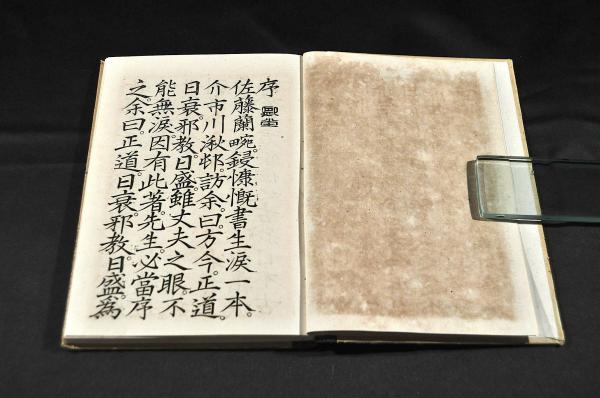 序
佐藤蘭畹。鋟慷慨書生涙一本。
介市川湫邨。訪余曰。方今。正道。
日衰。邪教日盛。雖丈夫之眼。不
能無涙。因有此著。先生。必當序
之。余曰。正道。日衰。邪教。日盛。為